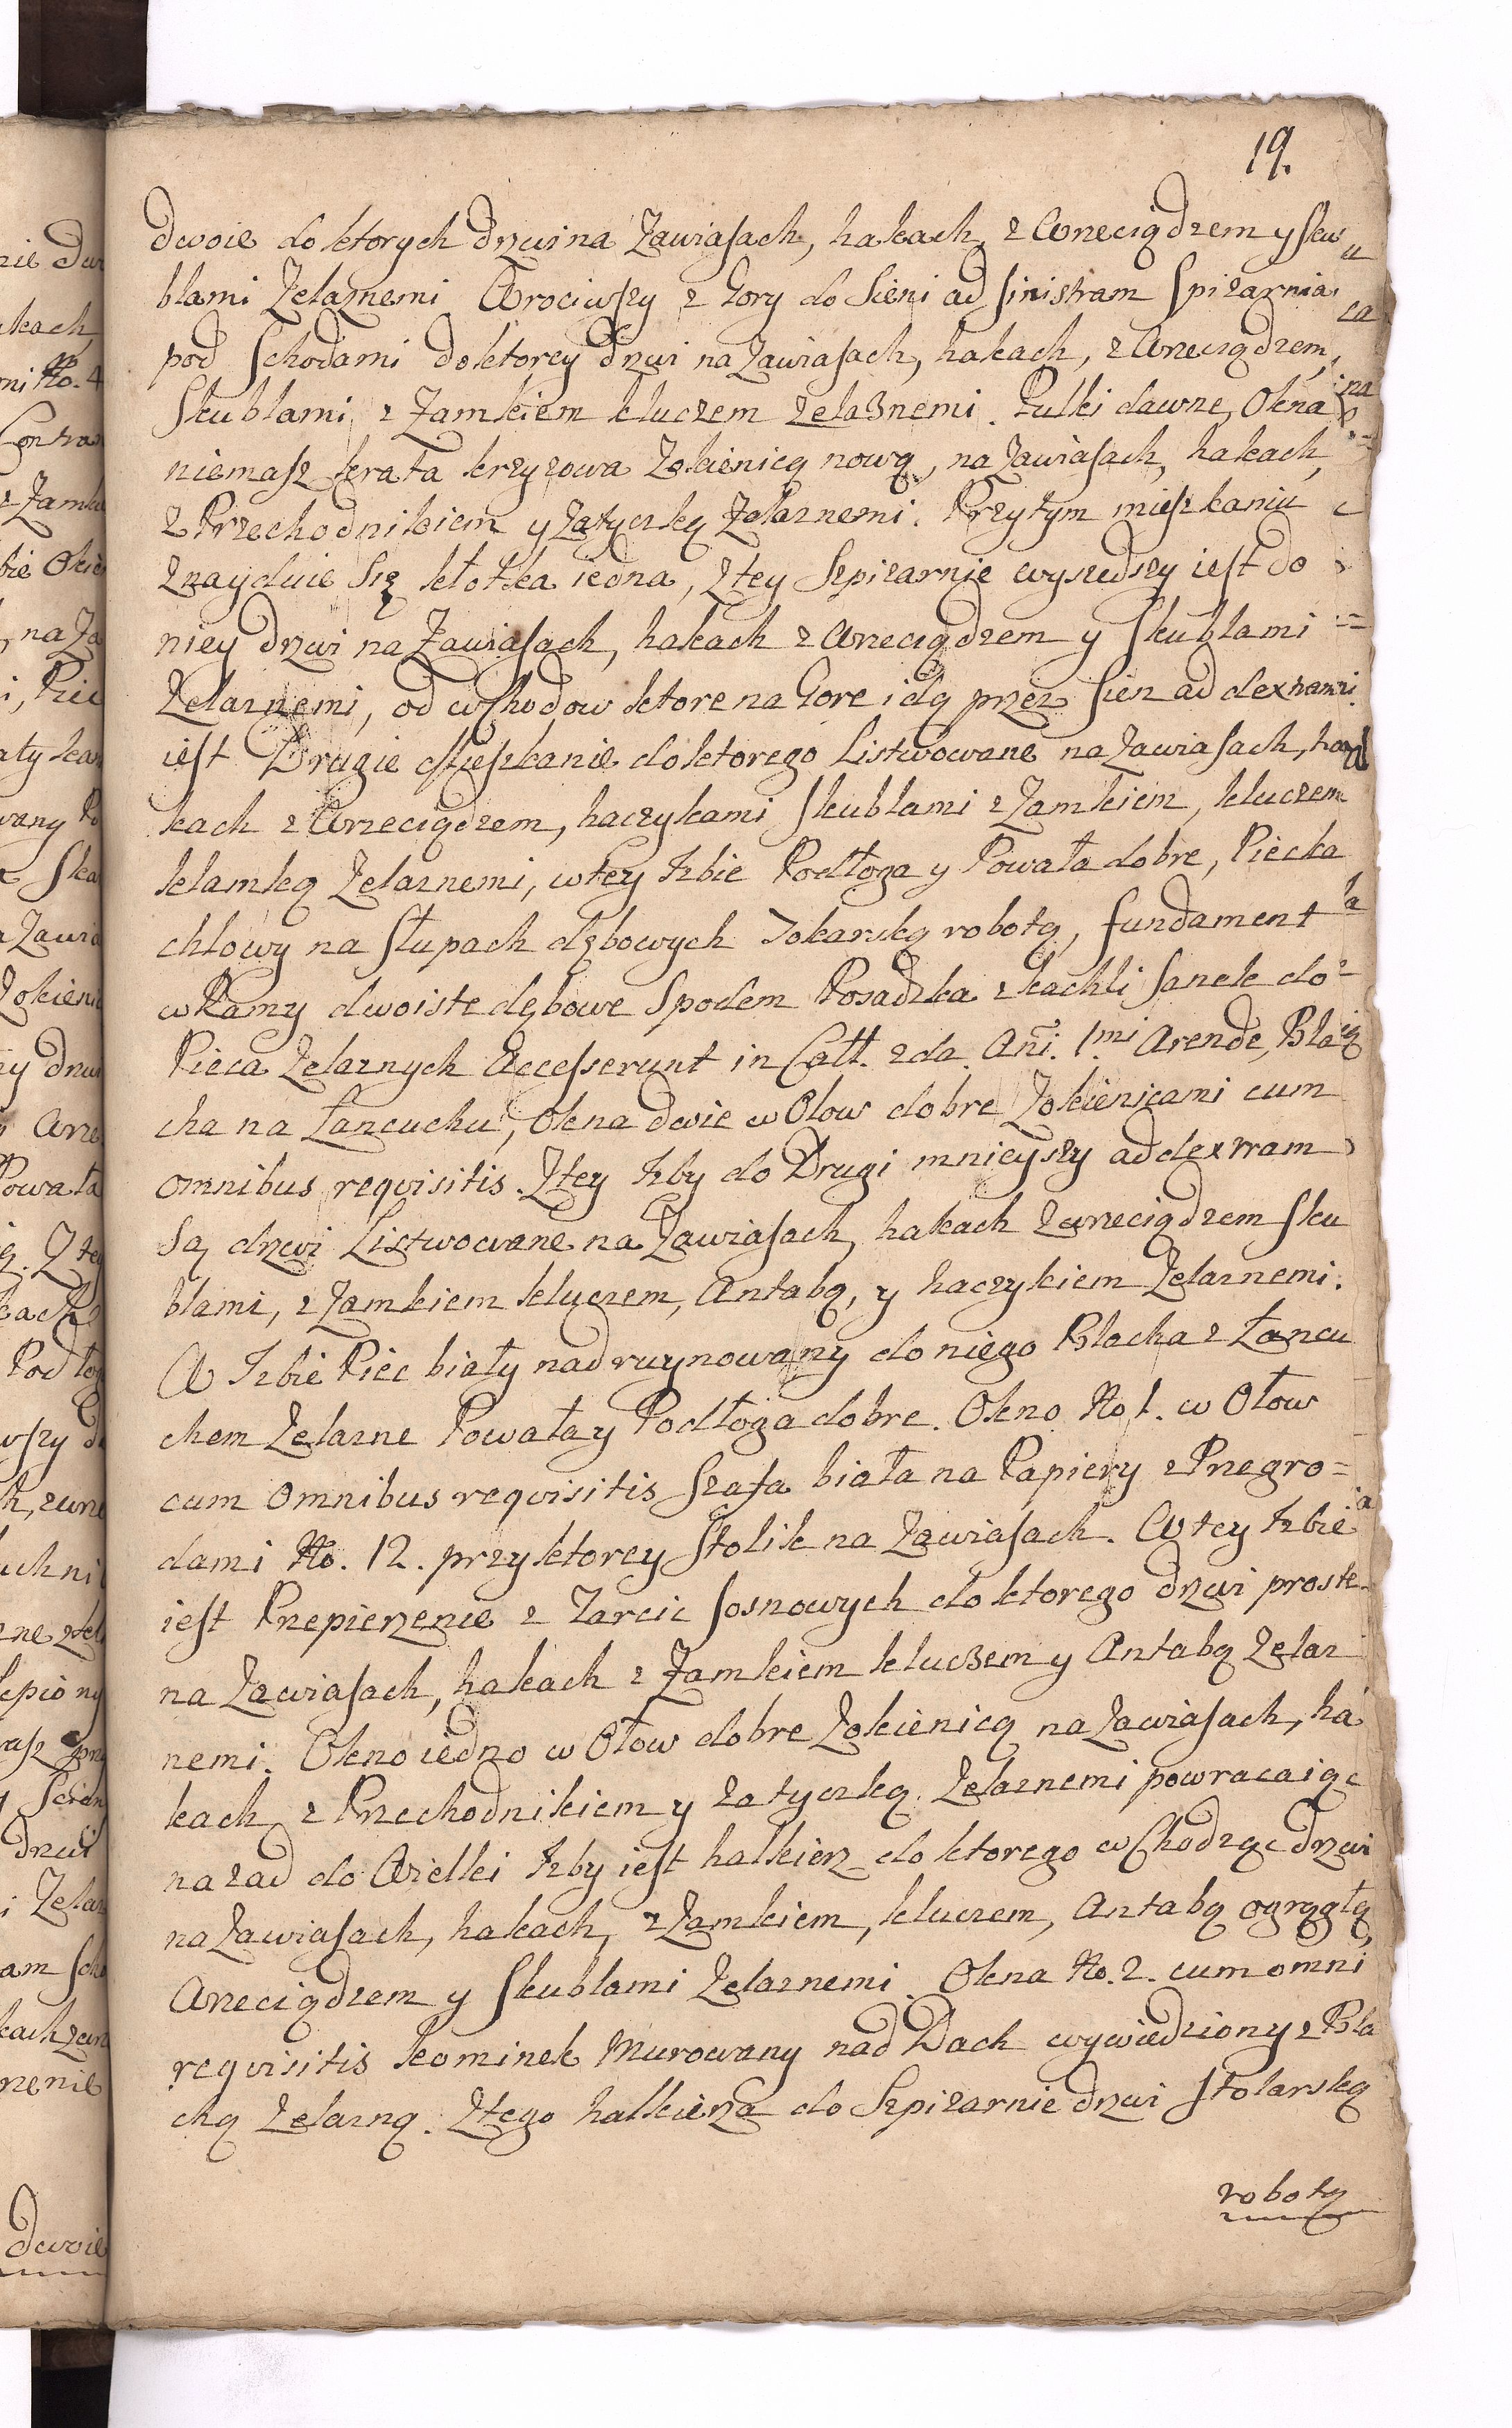 19.
dwoie do ktorych drzwi na Zawiasach, hakach, z Wrzeciądzem y sku
blami Zelaznemi Wrociwszy z Gory do Sieni ad sinistram Spizarnia
pod Schodami do ktorey drzwi na Zawiasach, hakach, z Wrzeciądzem,
Skublami, z Zamkiem kluczem zelaznemi. Pulki dawne, Okna
niemasz krata krzyzowa Zokienicą nową, na Zawiasach, hakach,
z Przechodnikiem y Zatyczką Zelaznemi. Przytym mieszkaniu
znayduie Się kłotka iedna, Ztey Szpizarnie wyszedszy iest do
niey drzwi na Zawiasach, hakach z Wrzeciądzem y Skublami
Zelaznemi, od wschodow ktore na Gore idą przez sien ad dextram
iest Drugie Mieszkanie do ktorego Listwowane na Zawiasach, ha
kach z Wrzeciądzem, haczykami Skublami z Zamkiem, kluczem
klamką Zelaznemi, wtey Izbie Podłoga y Powała dobre, Piec ka
chlowy na Słupach dębowych Tokarską robotą, fundament
w Ramy dwoiste dębowe Spodem Posadzka z kachli Sanek do
Pieca Zelaznych Accesserunt in Catt. 2da. Añi. 1mi Arendæ, Bla
cha na Łancuchu, Okna dwie w Olow dobre Zokienicami cum
omnibus reqvisitis. Ztey Izby do Drugi mnieyszy ad dextram
Są drzwi Listwowane na Zawiasach, hakach z wrzeciądzem Sku
blami, z Zamkiem kluczem, Antabą, y haczykiem Zelaznemi.
W Izbie Piec biały nadruynowany do niego Blacha z Łancu
chem Zelazne Powała y Podłoga dobre. Okno No 1. w Ołow
cum omnibus reqvisitis Szafa biała na Papiery z Przegro=
dami No. 12. przy ktorey Stolik na Zawiasach. W tey Izbie
iest Przepierzenie z Tarcic sosnowych do ktorego drzwi proste
na Zawiasach, hakach z Zamkiem kluczem y Antabą Zelaz
nemi. Okno iedno w Ołow dobre Zokienicą na Zawiasach, ha
kach z Przechodnikiem y Zatyczką Zelaznemi powracaiąc
nazad do Wielki Izby iest halkierz do ktorego wchodząc drzwi
na Zawiasach, hakach, z Zamkiem, kluczem, Antabą ogrągłą,
Wrzeciądzem y Skublami Zelaznemi. Okna No. 2. cum omni
reqvisitis kominek Murowany nad Dach wywiedziony z Bla
chą Zelazną. Ztego halkierza do Szpizarnie drzwi stolarską
robotą